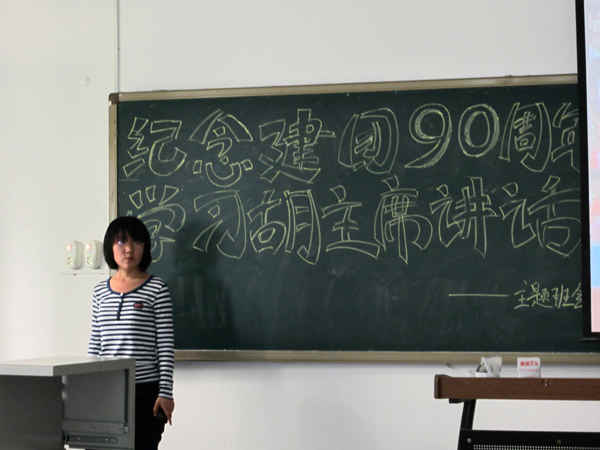 纪念建团90周年
学习胡主席讲话
——主题班会